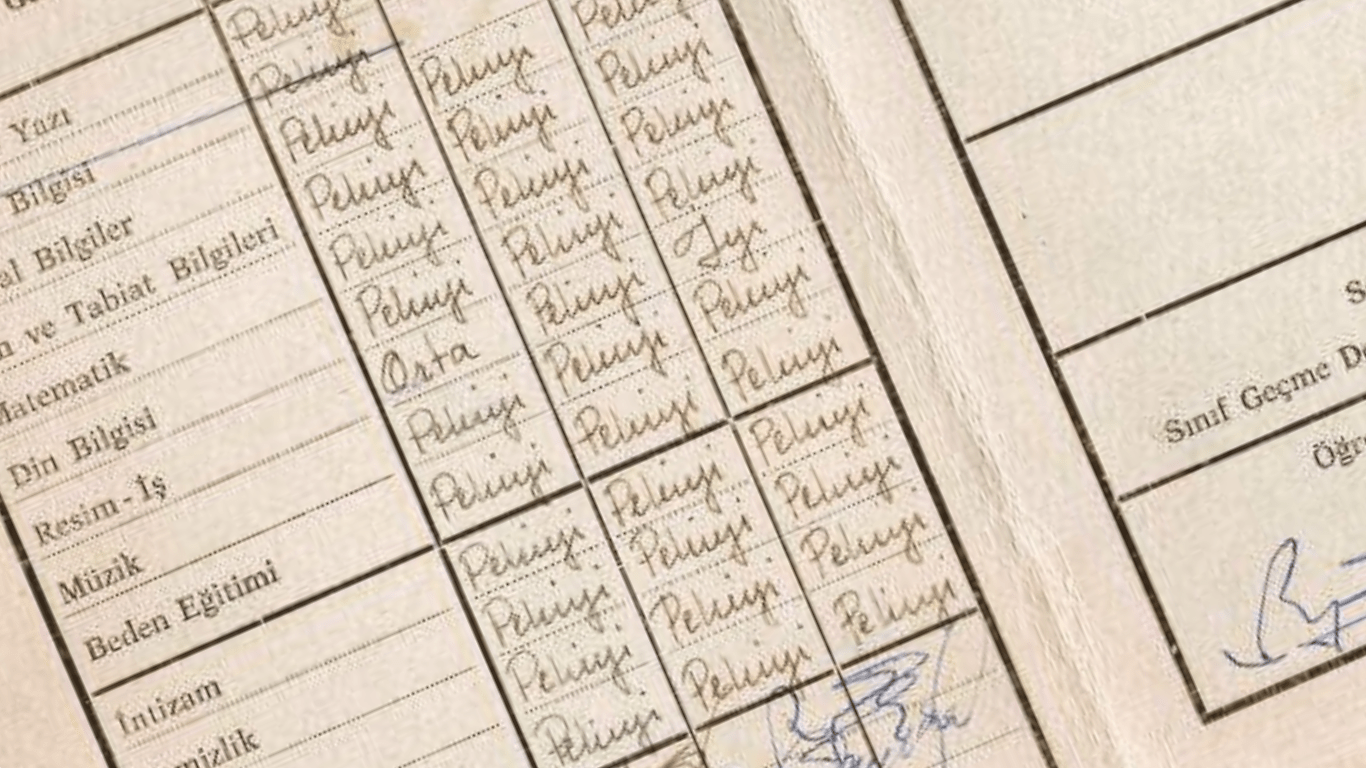 Yazı Pekiyi
Bilgisi Pekiyi
al Bilgiler Pekiyi Pekiyi Pekiyi
n ve Tabiat Bilgileri Pekiyi Pekiyi Pekiyi
Matematik Pekiyi Pekiyi Pekiyi
Din Bilgisi Pekiyi Pekiyi Pekiyi
Resim-İş Orta Pekiyi İyi
Müzik Pekiyi Pekiyi Pekiyi
Beden Eğitimi Pekiyi Pekiyi Pekiyi
İntizam Pekiyi Pekiyi Pekiyi
mizlik Pekiyi Pekiyi Pekiyi
Pekiyi Pekiyi Pekiyi
Pekiyi Pekiyi Pekiyi
S
Sınıf Geçme De
Öğr